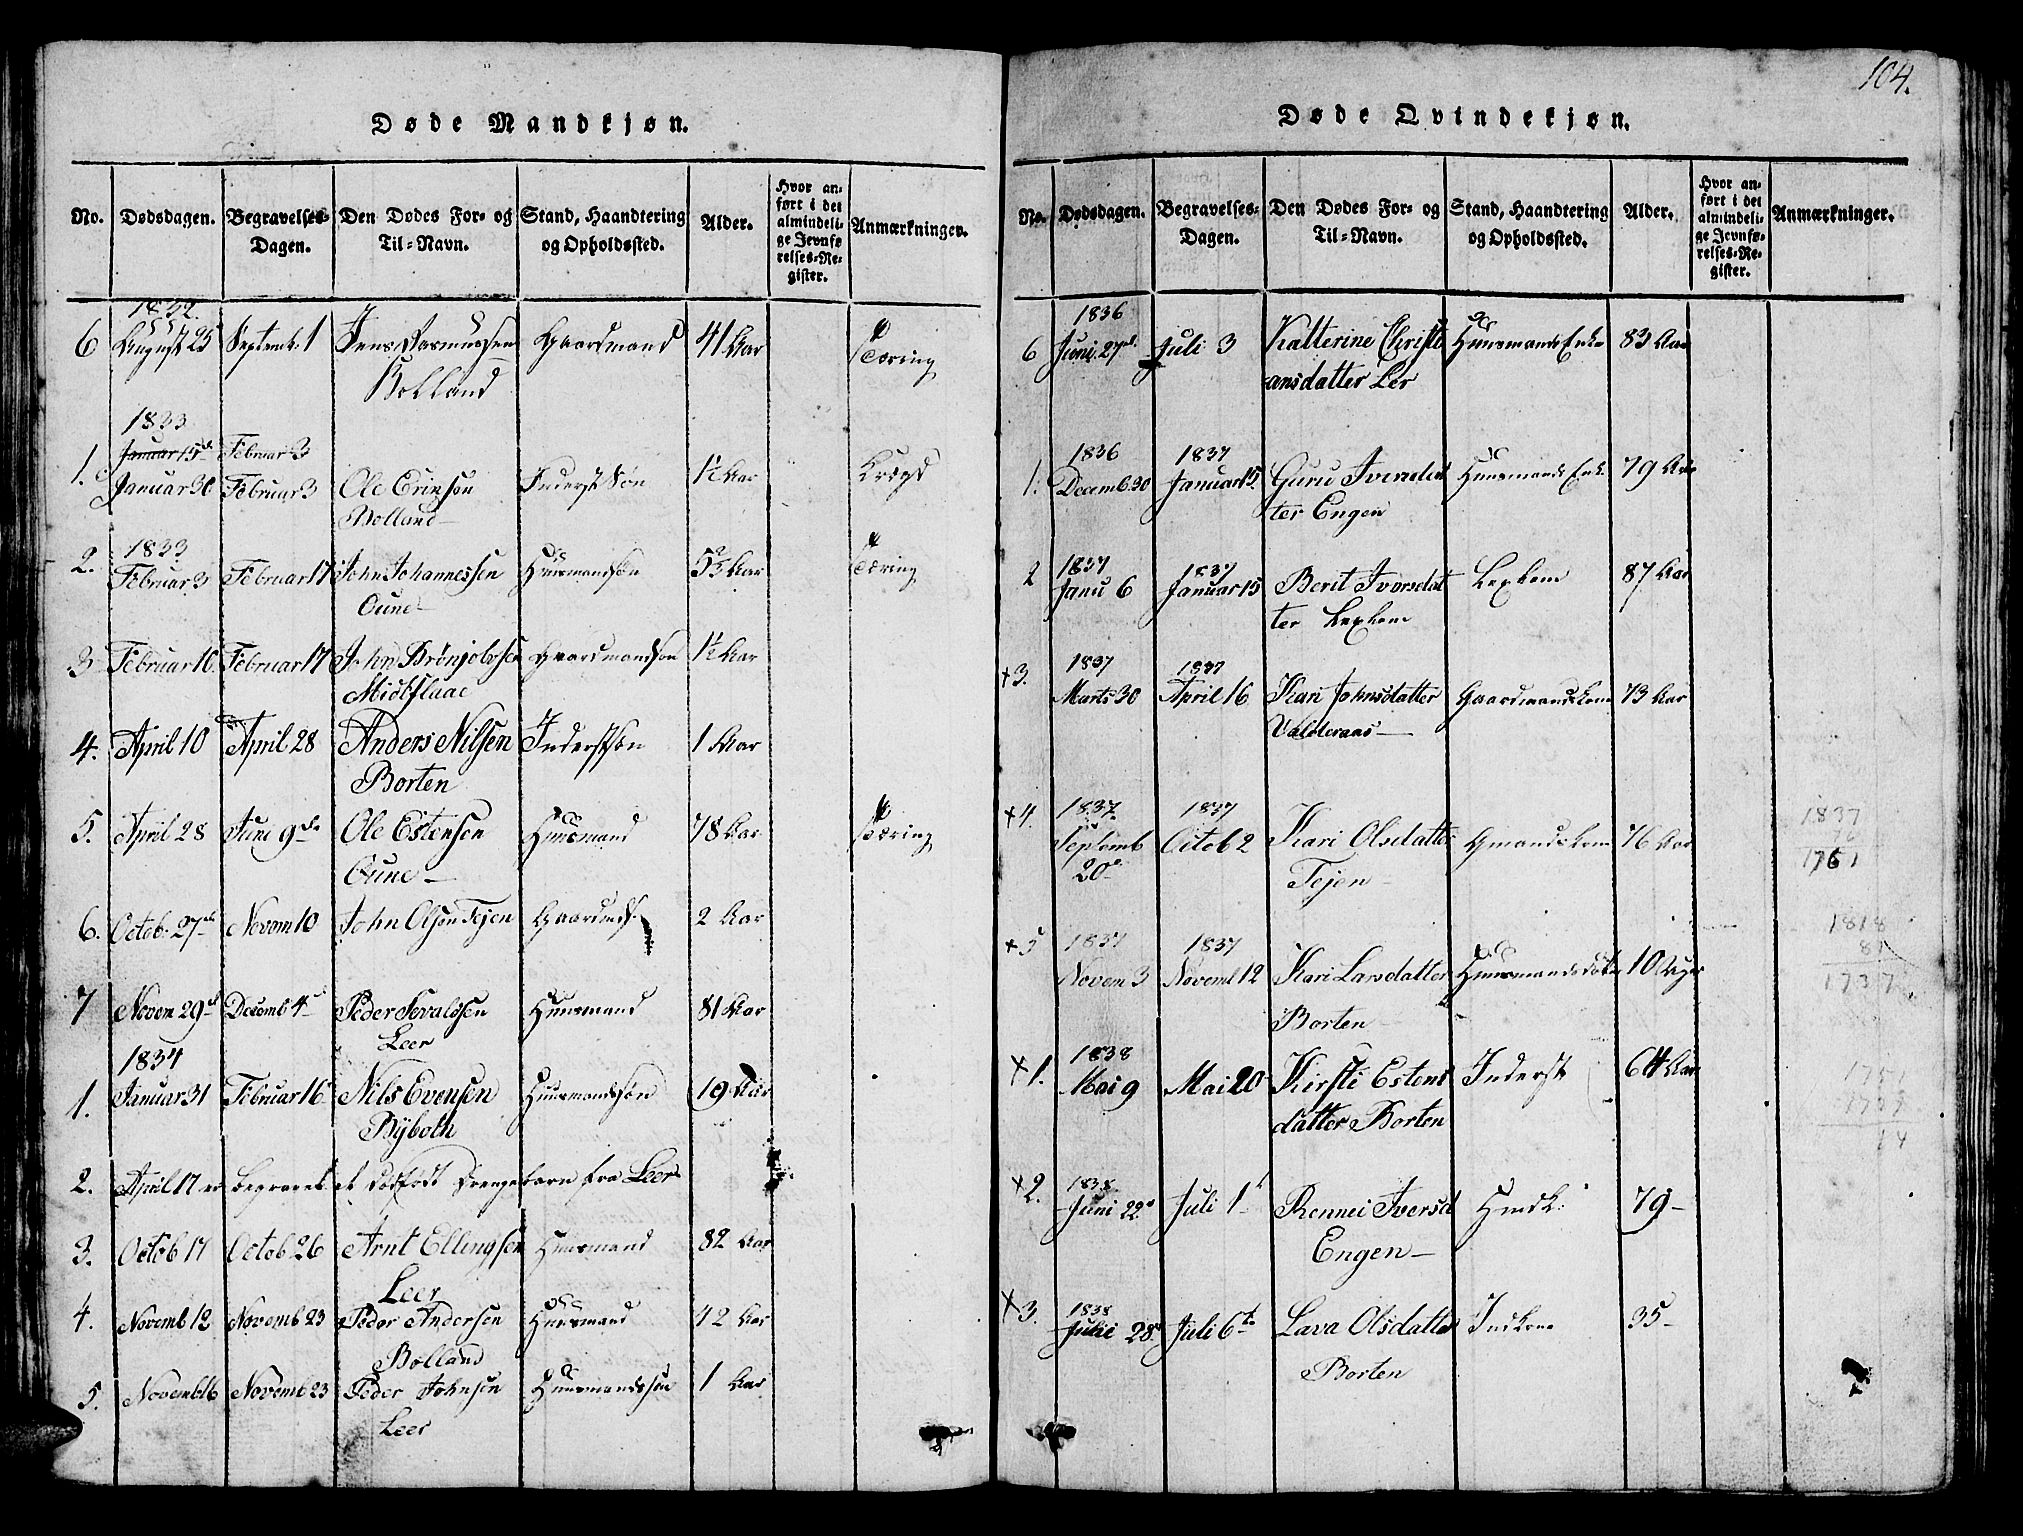 104.
Døde Mandkjøn.
No. Dødsdagen. Begravelses-Dagen. Den Dødes For- og Til-Navn. Stand, Haandtering og Opholdssted. Alder. Hvor anført i det almindelige Jevnførelses-Register. Anmærkninger.
1832.
6 August 25 Septemb. 1 Jens Rasmussen Gaardmand 41 Aar Tæring
Bolland
1833
Januar 15 Februar 3
1. Januar 30 Februar 3 Ole Erinsen Inderst Søn 1½ Aar
Bolland
1833
2. Februar 3 Februar 17 John Johannessen Huusmandsøn Aar Tæring
Oune
3 Februar 16. Februar 17 John Brønjolvsen Gaardmandsøn 1½ Aar
Midtflaae
4. April 10 April 28 Anders Nilsen Inderstsøn 1 Aar
Borten
5. April 28 Juni 9de Ole Estensen Huusmand 78 Aar Tæring
Oune
6. Octob. 27de Novem 10 John Olsen Tejen 2 Aar
7 Novem 29d Desemb 4d Peder Sevaldsen Huusmand 81 Aar
Leer
1834
1. Januar 31 Februar 16 Nils Evensen Huusmandssøn 19 Aar
Bÿboth
2. April 17 er begravet et dødfødt Drengebarn fra Leer
3. Octob 17 Octob 26 Arnt Ellingsen Huusmand 82 Aar
Leer
4. Novemb 12 Novemb 23 Peder Andersen Huusmand 42 Aar
Bolland
5. Novemb 16 Novemb 23 Peder Johnsen Huusmandssøn 1 Aar
Leer
Døde Qvindekjøn.
No. Dødsdagen. Begravelses-Dagen. Den Dødes For- og Til-Navn. Stand, Haandtering og Opholdssted. Alder. Hvor anført i det almindelige Jevnførelses-Register. Anmærkninger.
1836
6 Juni 27de Juli 3 Katterine Christi Huusmands Enke 83 Aar
ansdatter Ler
1836 1837
1. Decemb. 30 Januar 15. Guru Iversdat Huusmands Enk. 79 Aar
ter Engen
1837 1837
2 Janu 6 Januar 15 Berit Iversdat Lexkone 87 Aar
ter Lexkone
1837 1837
+3. Marts 30 April 16 Kari Johnsdatter Gaardmandskone 73 Aar
Valderaas
+4. 1837 1837
Septemb Octob 2 Kari Olsdatter Gmandskone 76 Aar
20de Tejen
1837
76
1761
+5 1837 1837
Novem 3 Novemb 12 Kari Larsdatter Huusmandsdotter 10 Uger
Borten
1818
81
1737
1838
+1. Mai 9 Mai 20 Kirsti Estens Inderst 64 Aar
datter Borten
14
1838
+2. Juni 22d Juli 1t Rennei Iversd Hmdk: 79
Engen
1838
+3. Julii 28d Juli 6te Lava Olsdatter Indkone 35
Borten